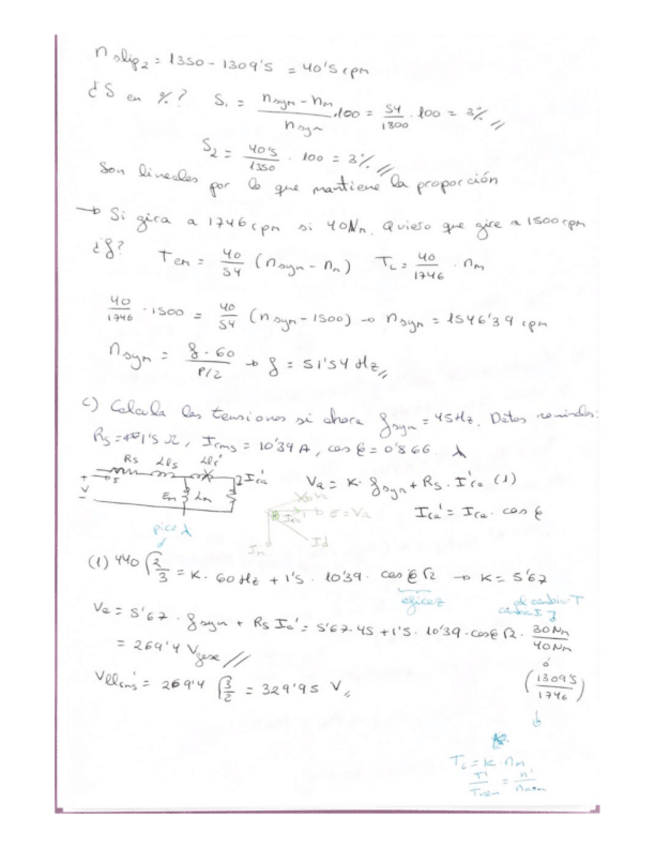 n slip₂ = 1350 - 1309'5 = 40'5 rpm
¿S en %? S₁ = (n syn - n m)/n syn · 100 = 54/1800 · 100 = 3% //
S₂ = 40'5/1350 · 100 = 3% //
Son lineales por lo que mantiene la proporción
→ Si gira a 1746 rpm si 40Nm. Quiero que gire a 1500 rpm
¿f? Tem = 40/54 (n syn - n m) T L = 40/1746 · n m
40/1746 · 1500 = 40/54 (n syn - 1500) → n syn = 1546'39 rpm
n syn = f · 60 / P/2 → f = 51'54 Hz //
c) Calcula las tensiones si ahora f syn = 45Hz. Datos nominales:
Rs = 1'5 Ω, I rms = 10'39 A, cos φ = 0'866. λ
Rs Lls Llr'
+ V - I Em Lm Ira'
Va = K · f syn + Rs · Ira' (1)
Ira' = Ira · cos φ
E = Va
Im
pico λ
(1) 440 √(2/3) = K · 60 Hz + 1'5 · 10'39 · cos φ √2 → K = 5'67
eficaz
al cambio T cambia I
Va = 5'67 · f syn + Rs Ia' = 5'67 · 45 + 1'5 · 10'39 · cos φ √2 · 30 Nm/40 Nm
= 269'4 V fase //
ó
(1309'5/1746)
V ll rms' = 269'4 √(3/2) = 329'95 V //
T L = K · n m
T'/T nom = n'/n nom